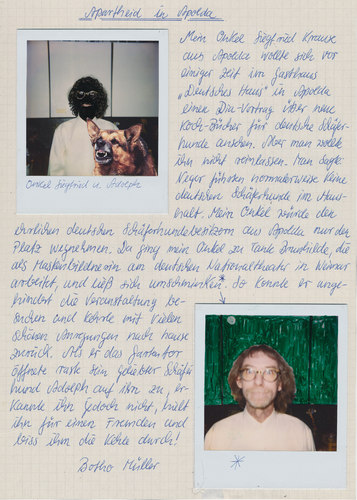 Apartheid in Apolda
Mein Onkel Siegfried Krause
aus Apolda wollte sich vor
einiger Zeit im Gasthaus
„Deutsches Haus" in Apolda
einen Dia-Vortrag über neue
Koch-Bücher für deutsche Schäfer-
hunde ansehen. Aber man wollte
ihn nicht reinlassen. Man sagte
Neger führten normalerweise keine
deutschen Schäferhunde im Haus-
halt. Mein Onkel würde den
Onkel Siegfried u. Adolph
ehrlichen deutschen Schäferhundebesitzern aus Apolda nur den
Platz wegnehmen. Da ging mein Onkel zu Tante Brunhilde, die
als Maskenbildnerin am deutschen Nationaltheater in Weimar
arbeitet, und ließ sich umschminken.* So konnte er unge-
hindert die Veranstaltung be-
suchen und kehrte mit vielen
schönen Anregungen nach hause
zurück. Als er das Gartentor
öffnete raste sein geliebter Schäfer-
hund Adolph auf ihn zu, er-
kannte ihn jedoch nicht, hielt
ihn für einen Fremden und
biss ihm die Kehle durch!
Botho Müller
*